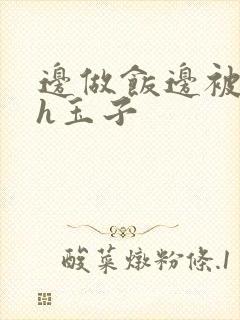 邊做飯邊被
h玉子
酸菜燉粉條.1